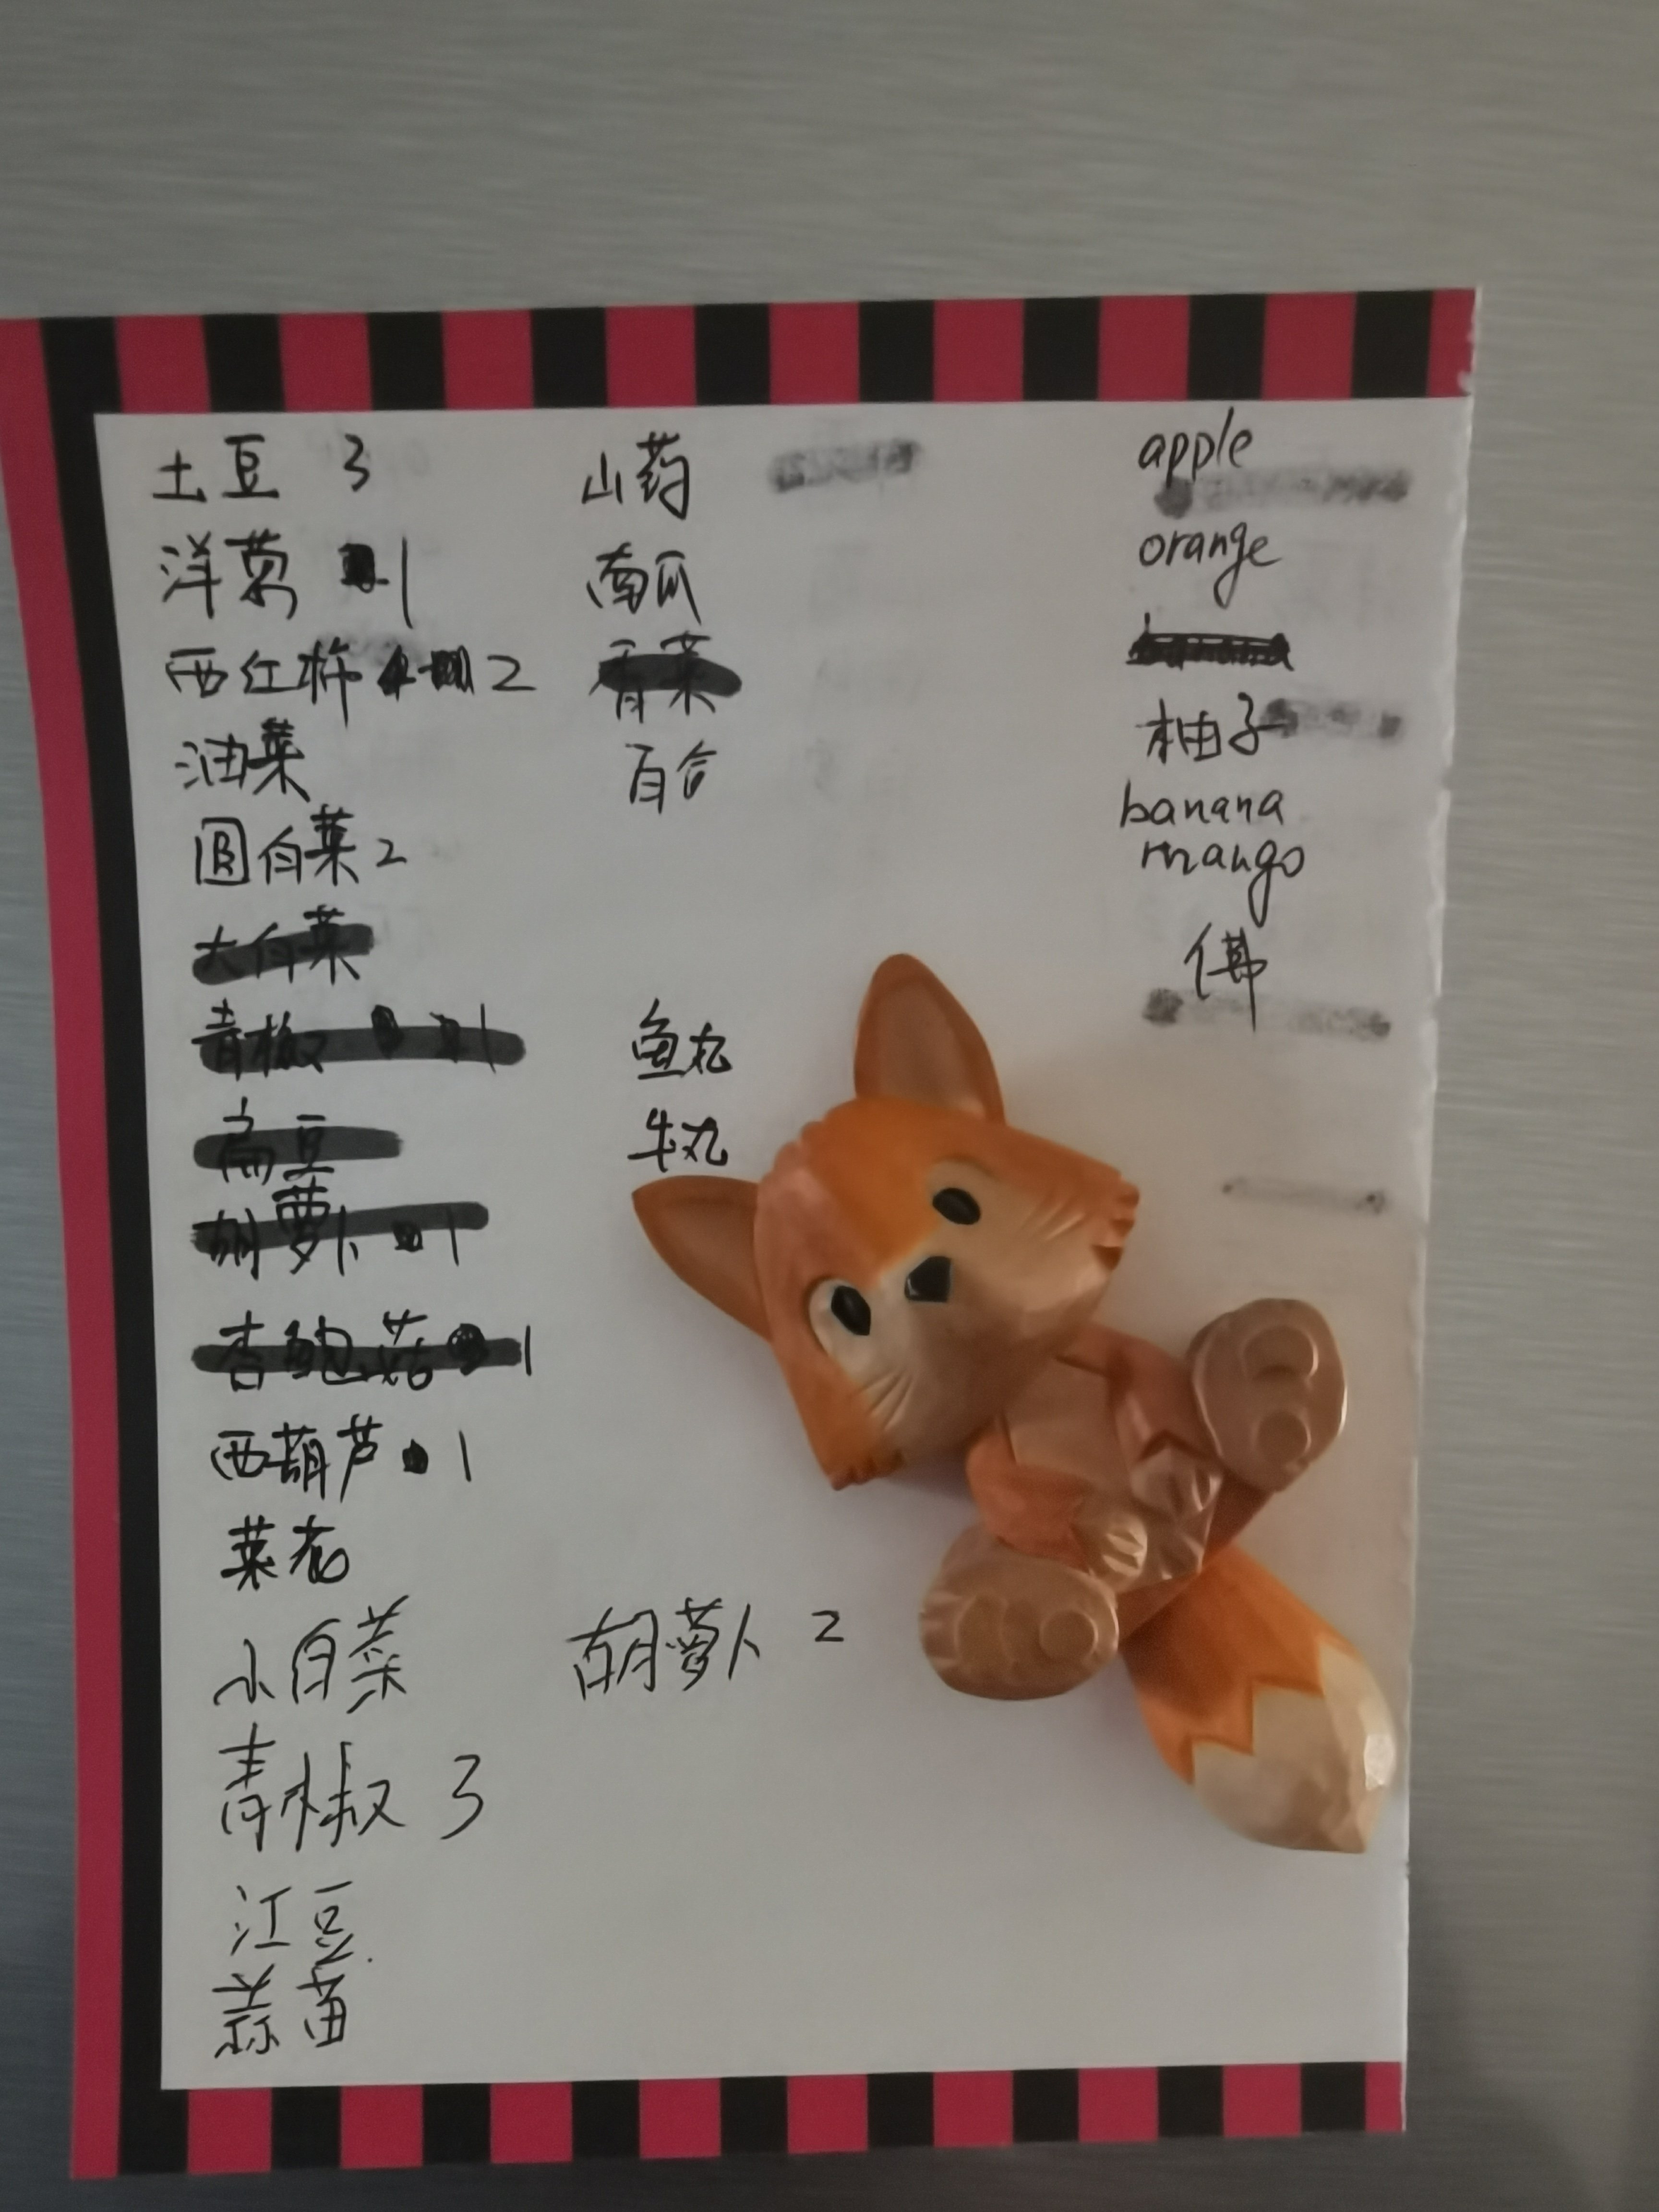 土豆 3
洋葱 1
西红柿 2
油菜
圆白菜 2
大白菜
青椒 1
扁豆
胡萝卜 1
杏鲍菇 1
西葫芦 1
菜花
小白菜
青椒 3
江豆
蒜苗
山药
南瓜
青菜
百合
鱼丸
牛丸
胡萝卜 2
apple
orange
banana
柚子
banana
mango